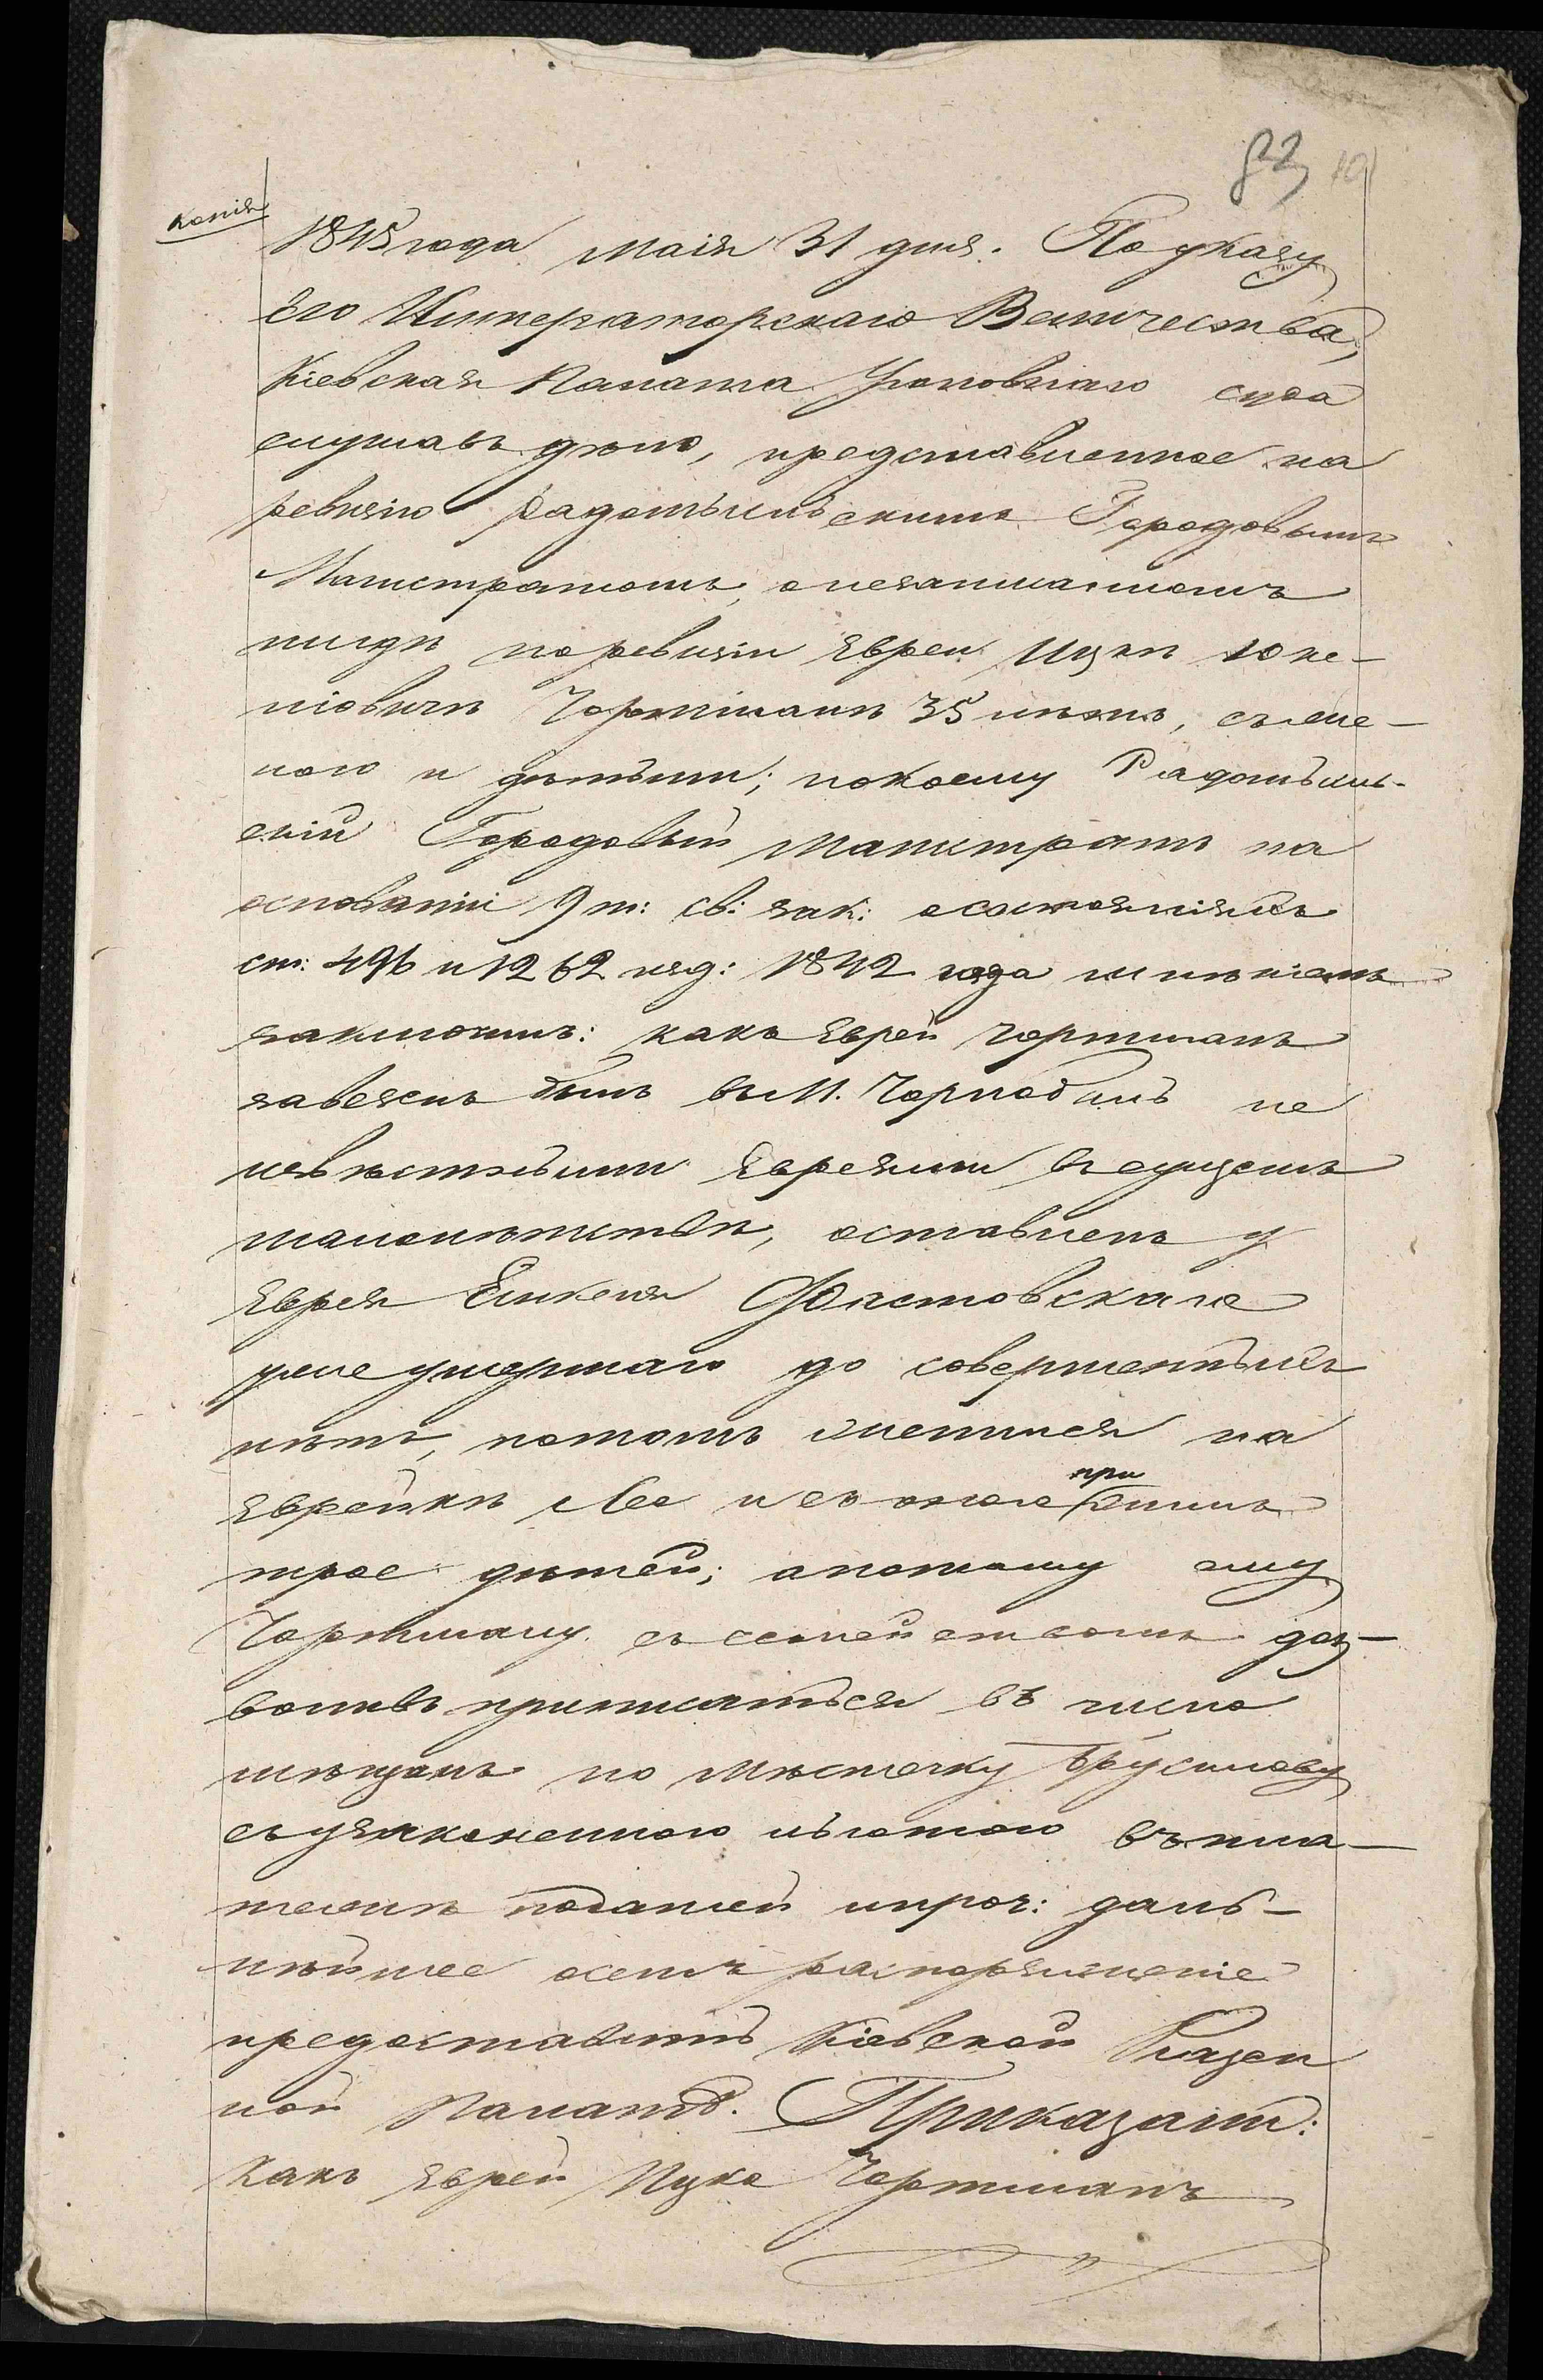 83
копія
1845 года Маія 31 дня. По указу
Его Императорскаго Величества,
Кіевская Палата Уголовнаго суда
слушавъ дѣло, представленное на
ревизію Радомысльскимъ Городовымъ
Магистратомъ, о незаписанномъ
нигдѣ по ревизіи Еврею Ицкѣ
Чортманѣ 35 лѣтъ, съ же-
ною и дѣтьми; по коему Радомысль-
скій Городовый Магистратъ на
основаніи 9 т: св: зак: о состояніяхъ
ст: 496 и 1262 изд: 1842 года мнѣніемъ
заключилъ: какъ Еврей Чортманъ
завезенъ былъ въ М. Чорнобыль не
извѣстными Евреями въ сущемъ
малолѣтствѣ, оставленъ у
Еврея Фастовскаго
уже умершаго до совершенныхъ
лѣтъ, потомъ женился на
Еврейкѣ Леѣ и съ нею при
трое дѣтей; а потому ему
Чортману съ семействомъ доз-
воливъ приписаться въ число
мѣщанъ по мѣстечку Брусилову
съ узаконенною льготою въ пла-
тежѣ податей и проч: даль-
нѣйшее о семъ распоряженіе
предоставить Кіевской Казен
ной Палатѣ. Приказали:
Какъ Еврей Ицко Чортманъ